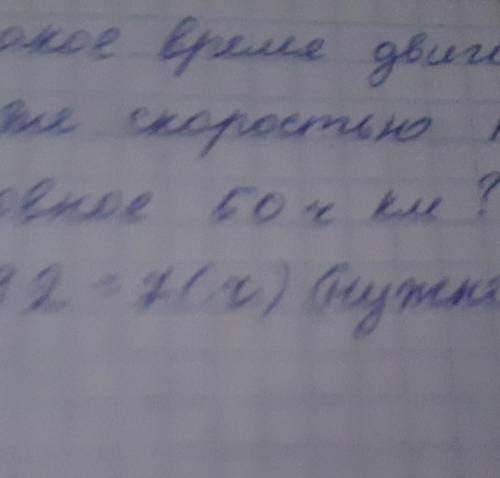 акое время двиго
же скоростью
овное 504 км?
2 = 7(ч) (нужна